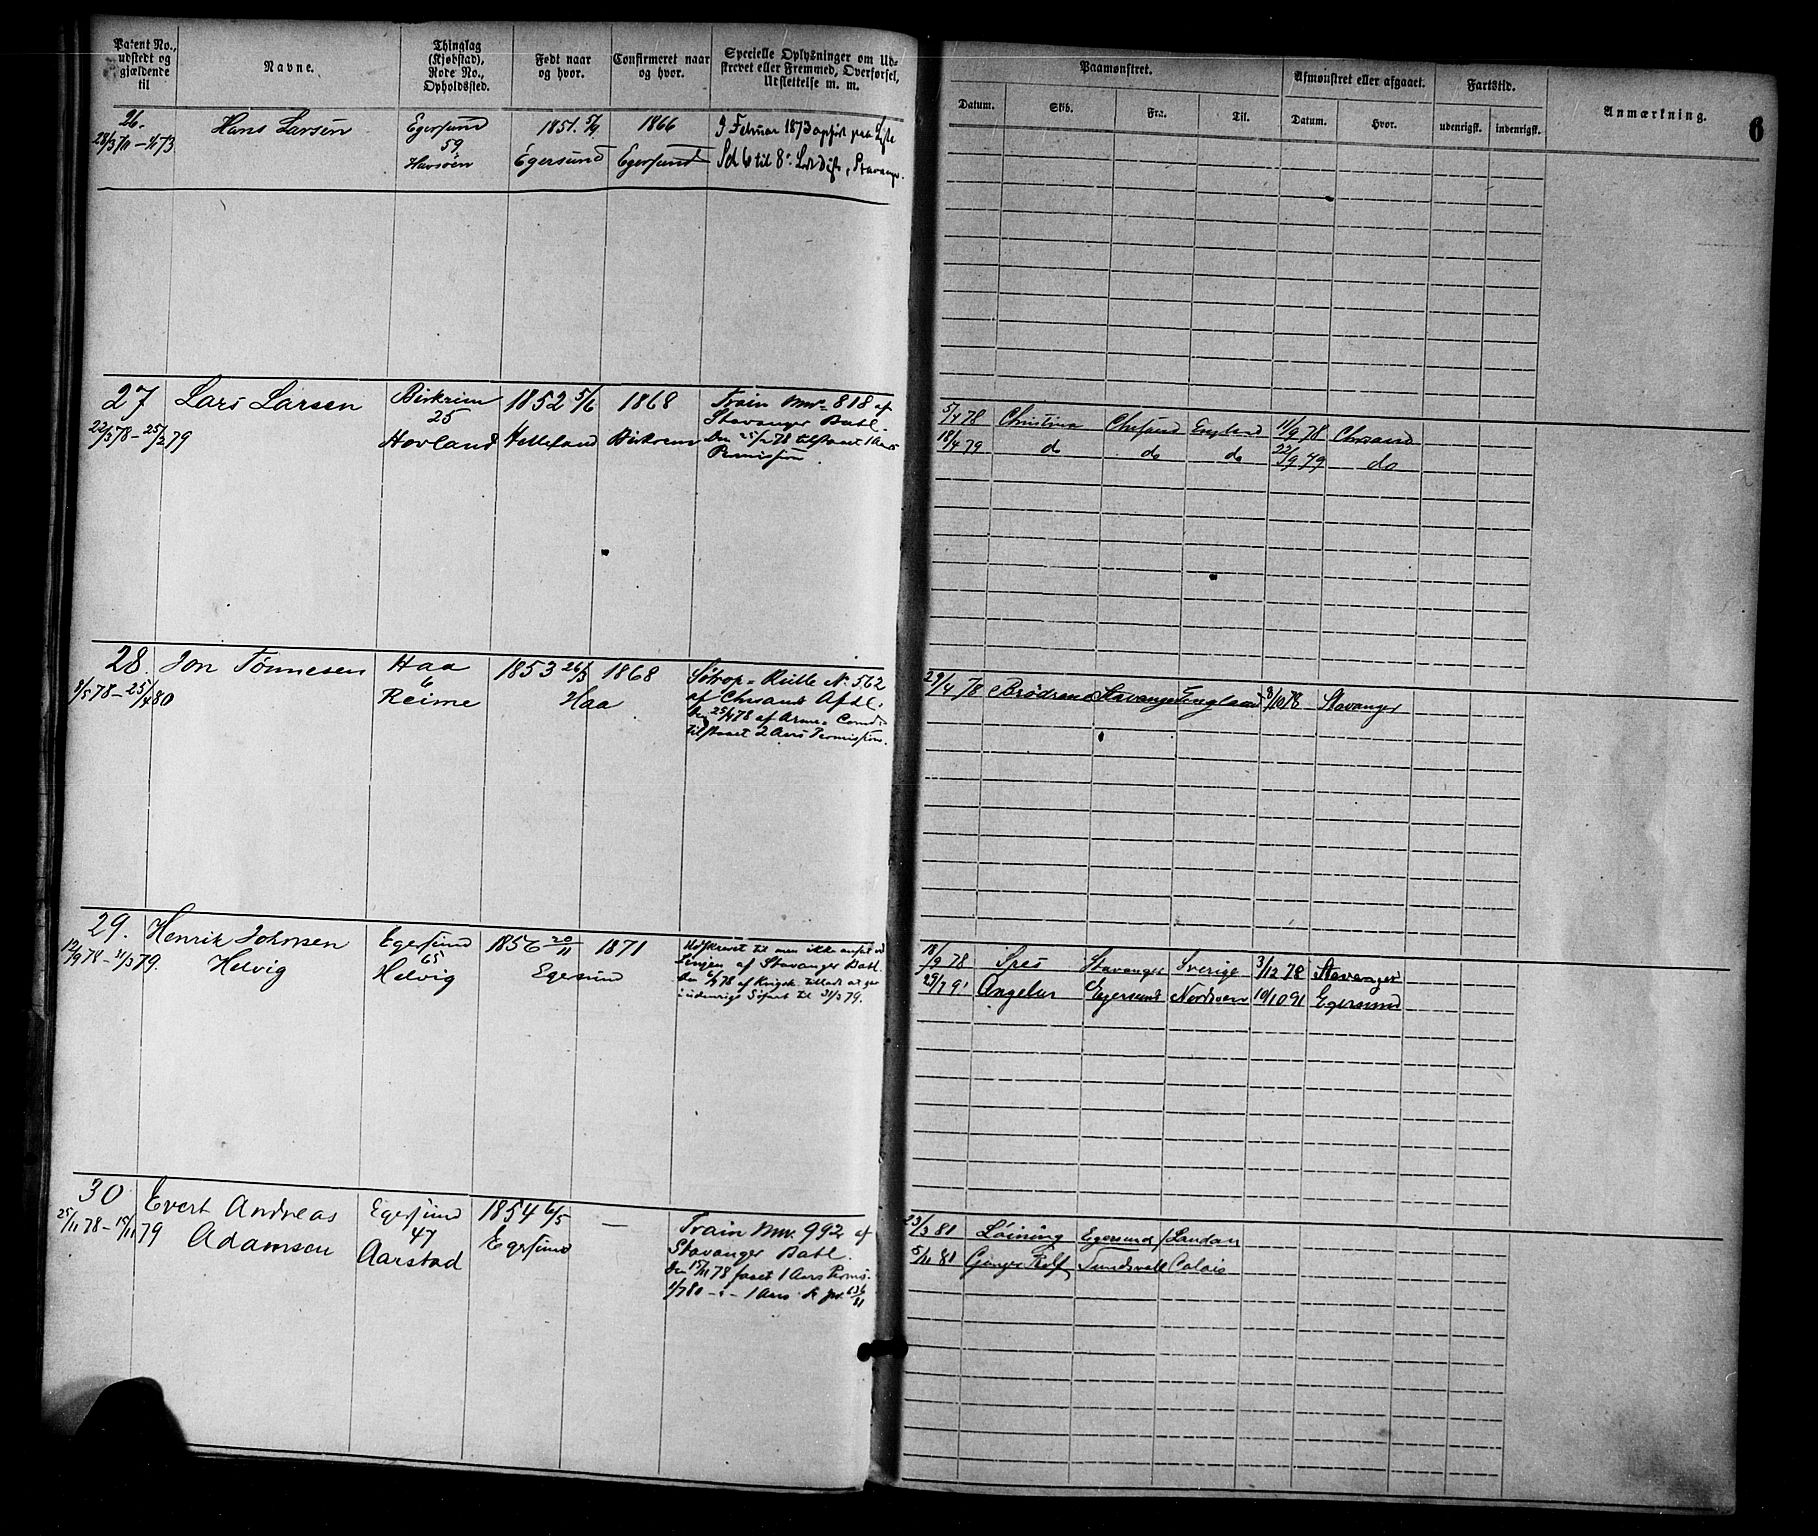 Patent No., udstedt og gjældende til
Navne.
Thinglag (Kjøbstad), Rode No., Opholdssted.
Født naar og hvor.
Confirmeret naar og hvor.
Specielle Oplysninger om Udskrevet eller Fremmed, Overførsel, Udslettelse m. m.
Paamønstret.
Datum.
Skib.
Fra.
Til.
Afmønstret eller afgaaet.
Datum.
Hvor.
Fartstid.
udenrigsk.
indenrigsk.
Anmærkning.
6
26.
Hans Larsen
Egersund
59
Havsøen
1851
Egersund
1866
Egersund
9 Februar 1873 opført paa
6 til 8
Stavanger.
27
22/3 78 – 25/2 79
Lars Larsen
Birkrem
25
Hovland
1852 5/6
Helleland
1868
Birkrem
Train Nr. 818 af
Stavanger Batl.
Den 25/2 78 tilstaaet 1 Aars
Permission.
5/4 78 Christina Chrsand England 11/9 78 Chrsand
18/4 79 do do do 22/9 79 do
28
8/5 78 – 25/4 80
Jon Tønnesen
Haa
6
Reime
1853 26/3
1868
Haa
Rulle N. 562
af Chrsands Afdl.
Den 25/4 78 af Arme-Comd.
tilstaaet 2 Aars Permission.
29/4 78 Brødrene Stavanger England 8/10 78 Stavanger
29.
12/9 78 – 31/3 79.
Henrik Johnsen
Helvig
Egersund
65
Helvig
1856 20/11
1871
Egersund
Udskrevet til men ikke ansat ved
Linjen af Stavanger Batl.
i udenrigs Søfart til 31/3 79.
18/9 78 Spes Stavanger Sverige 3/12 78 Stavanger
29/7 91 Angelus Egersund Nordsøen 10/10 91 Egersund
30
25/11 78 – 15/11 79
Evert Andreas
Adamsen
Egersund
47
Aarstad
1854 6/5
Egersund
—
Train Nr. 992 af
Stavanger Batl.
Den 15/11 78 faaet 1 Aars Permis.
1 Aars
23/3 81 Løining Egersund London
5/11 81 Sundsvall Calais